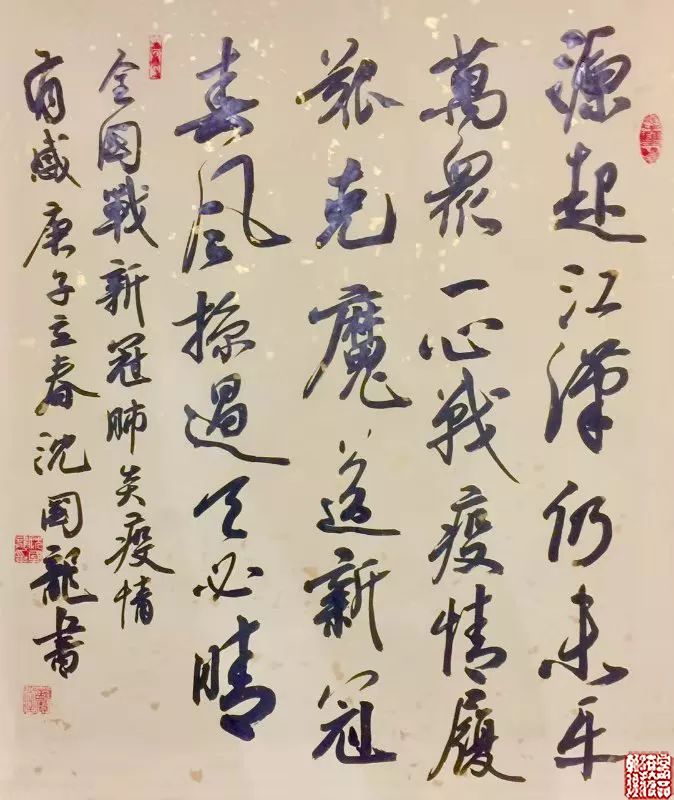 源起江漢仍未平
萬眾一心戰疫情履
艱克魔道新冠
春風掠過天必晴
全國戰新冠肺炎疫情
有感庚子立春沈國龍書